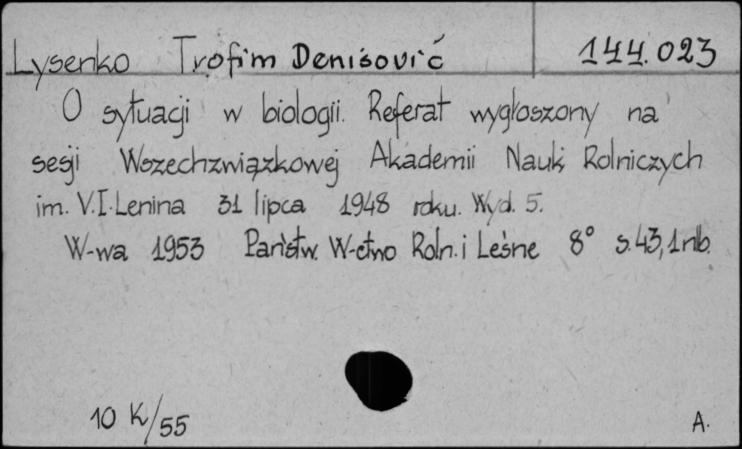 Lysenko Trofim Denisovič 144.023
O sytuacji w biologii. Referat wygłoszony na
sesji Wszechzwiązkowej Akademii Nauk Rolniczych
im. V.I.Lenina 31 lipca 1948 roku. Wyd. 5.
W-wa 1953 Państw. W-ctwo Roln. i Leśne 8° s.43,1nlb.
10 K/55 A.